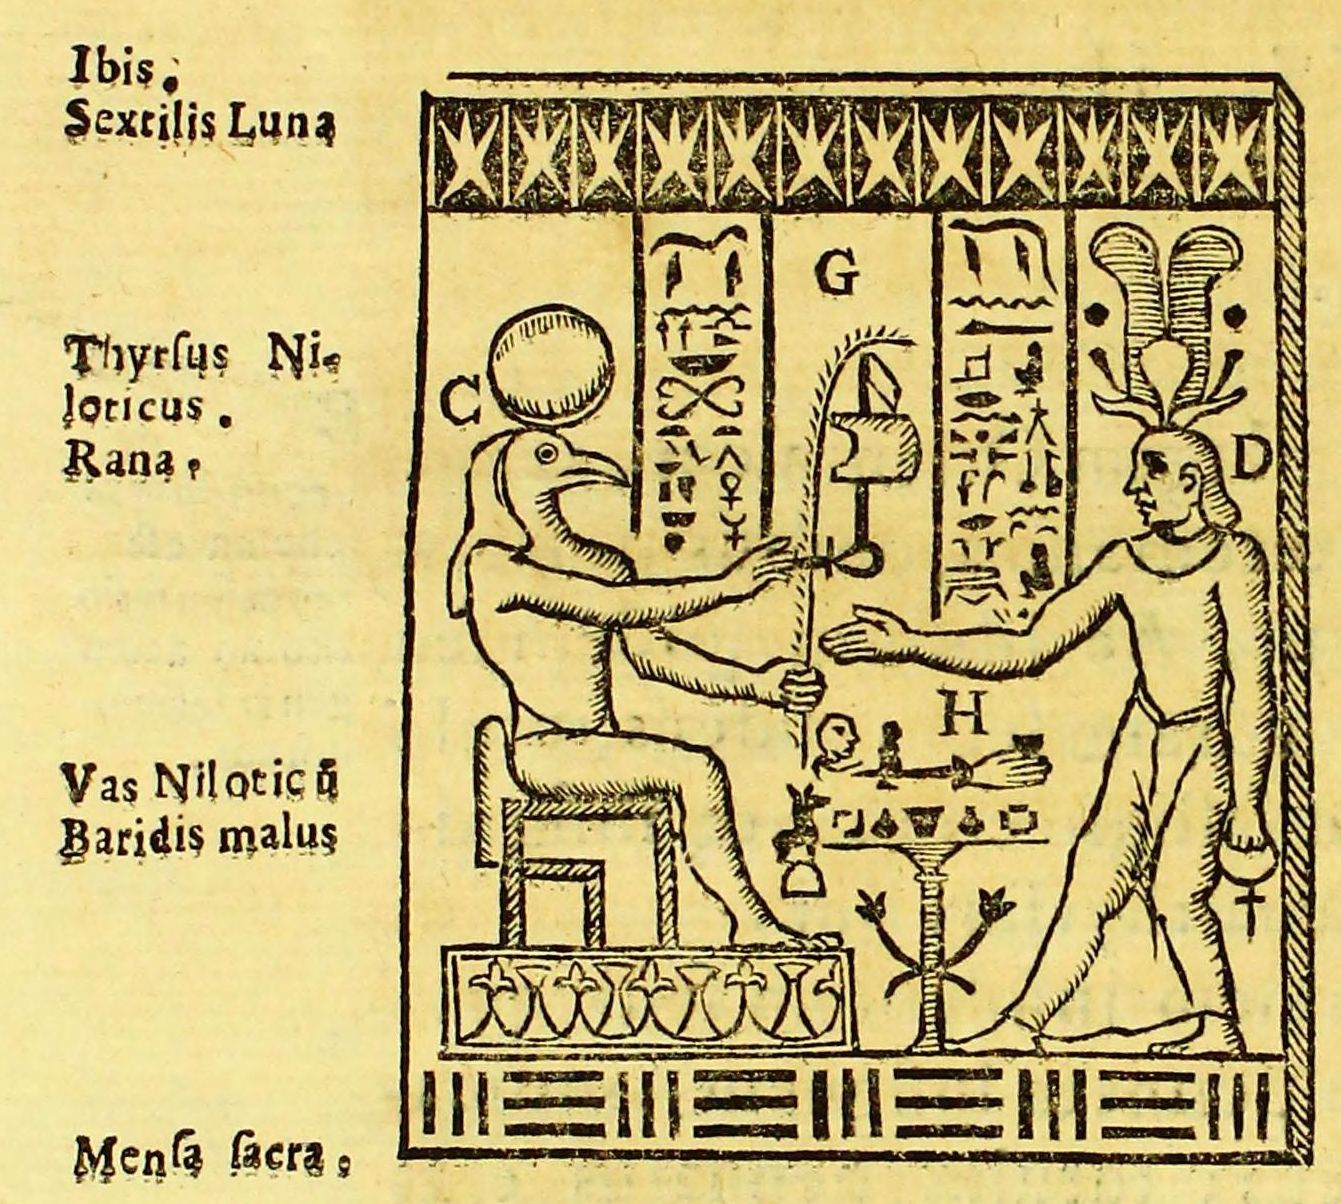 Ibis.
Sextilis Luna
Thyrſus Ni-
loticus.
Rana,
Vas Niloticū
Baridis malus
Menſa ſacra,
C
G
D
H